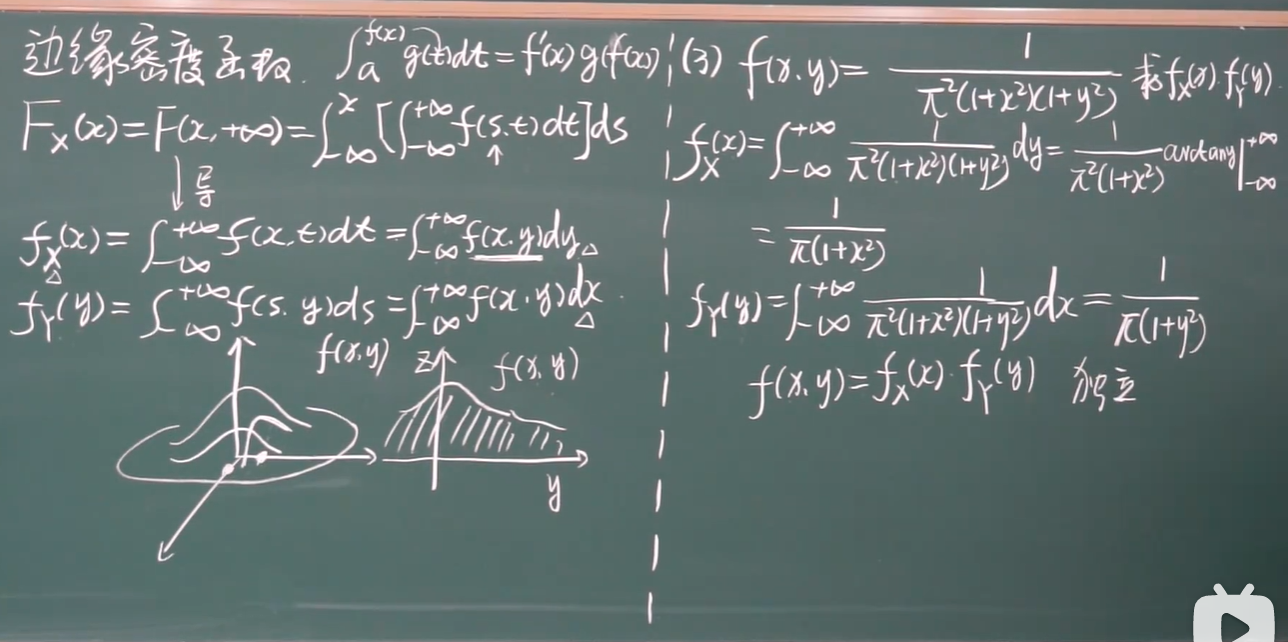 边缘密度函数. ∫_a^{f(x)} g(t)dt = f'(x) g(f(x))
F_X(x) = F(x, +∞) = ∫_{-∞}^{x} [∫_{-∞}^{+∞} f(s,t)dt]ds
↓导
f_X(x) = ∫_{-∞}^{+∞} f(x,t)dt = ∫_{-∞}^{+∞} f(x,y)dy
f_Y(y) = ∫_{-∞}^{+∞} f(s,y)ds = ∫_{-∞}^{+∞} f(x,y)dx
f(x,y)
z f(x,y)
y
(3) f(x,y) = 1/(π²(1+x²)(1+y²)) 求f_X(x). f_Y(y).
f_X(x) = ∫_{-∞}^{+∞} 1/(π²(1+x²)(1+y²)) dy = 1/(π²(1+x²)) arctany |_{-∞}^{+∞}
= 1/(π(1+x²))
f_Y(y) = ∫_{-∞}^{+∞} 1/(π²(1+x²)(1+y²)) dx = 1/(π(1+y²))
f(x,y) = f_X(x) · f_Y(y) 独立